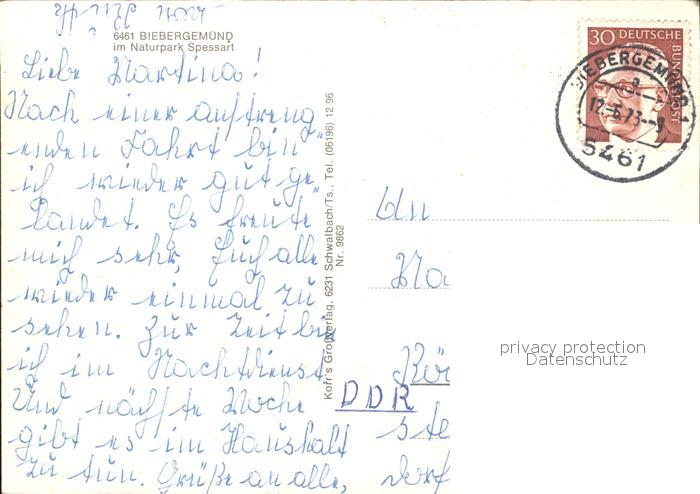 6461 BIEBERGEMÜND
im Naturpark Spessart
Liebe Martina!
Nach einer anstreng
enden Fahrt bin
ich wieder gut ge„
landet. Es freute
mich sehr, Euch alle
wieder einmal zu
sehen. Zur Zeit bin
ich im Nachtdienst
Und nächste Woche
gibt es im Haushalt
zu tun. Grüße an alle,
Kohr's Großverlag, 6231 Schwalbach/Ts., Tel. (06196) 12 96
Nr. 9862
30 DEUTSCHE
BUNDESPOST
BIEBERGEMÜND 1
12.-6.73-
6461
An
Ma
Kör
DDR
ste
dorf
privacy protection
Datenschutz